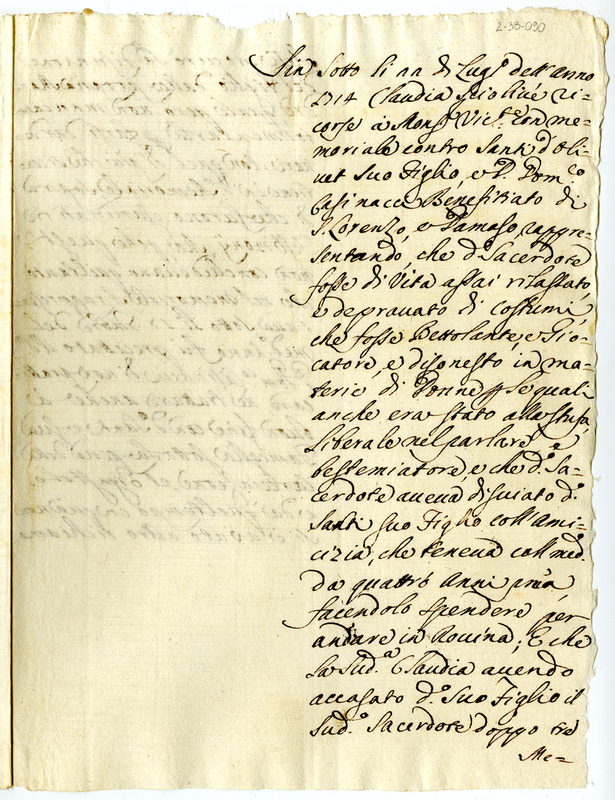 2-38-090
Sin Sotto li 22 di Lugº dell'anno
1714 Claudia Sciolivé ri=
corse à Monsr Vicº con me=
moriale contro Santi d'Oli=
vet Suo Figlio, e D. Domco
Casinacci Benefitiato di
S. Lorenzo, e Damaso, rappre=
sentando, che dº Sacerdote
fosse di Vita assai rilassato,
e depravato di costumi,
che fosse Bettolante, e Gio=
catore, e disonesto in ma=
terie di Donne p le quali
anche era stato alla Stufa,
liberale nel parlare e
bestemiatore, e che dº Sa=
cerdote aveva disviato dº
Santi suo Figlio coll'ami=
cizia, che teneva coll med.
da quattro Anni pma
facendolo spendere per
andare in Rovina; E che
la Sudª Claudia avendo
accasato dº Suo Figlio il
Sudº Sacerdote doppo tre
Me=